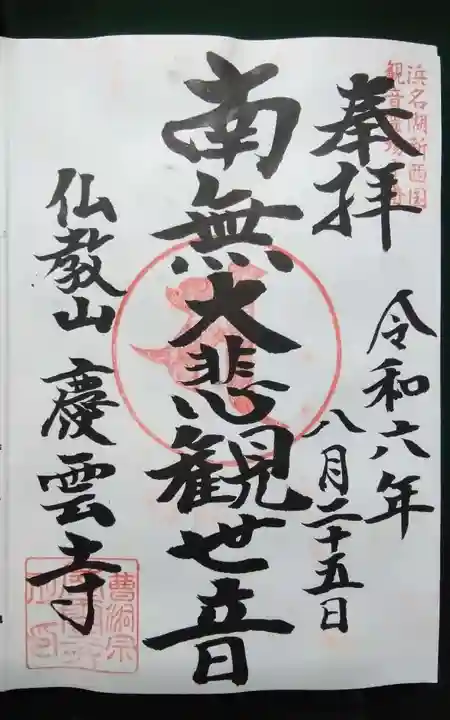 浜名湖新西国
観音霊場
奉拝
令和六年
八月二十五日
南無大悲観世音
仏教山 慶雲寺
曹洞宗